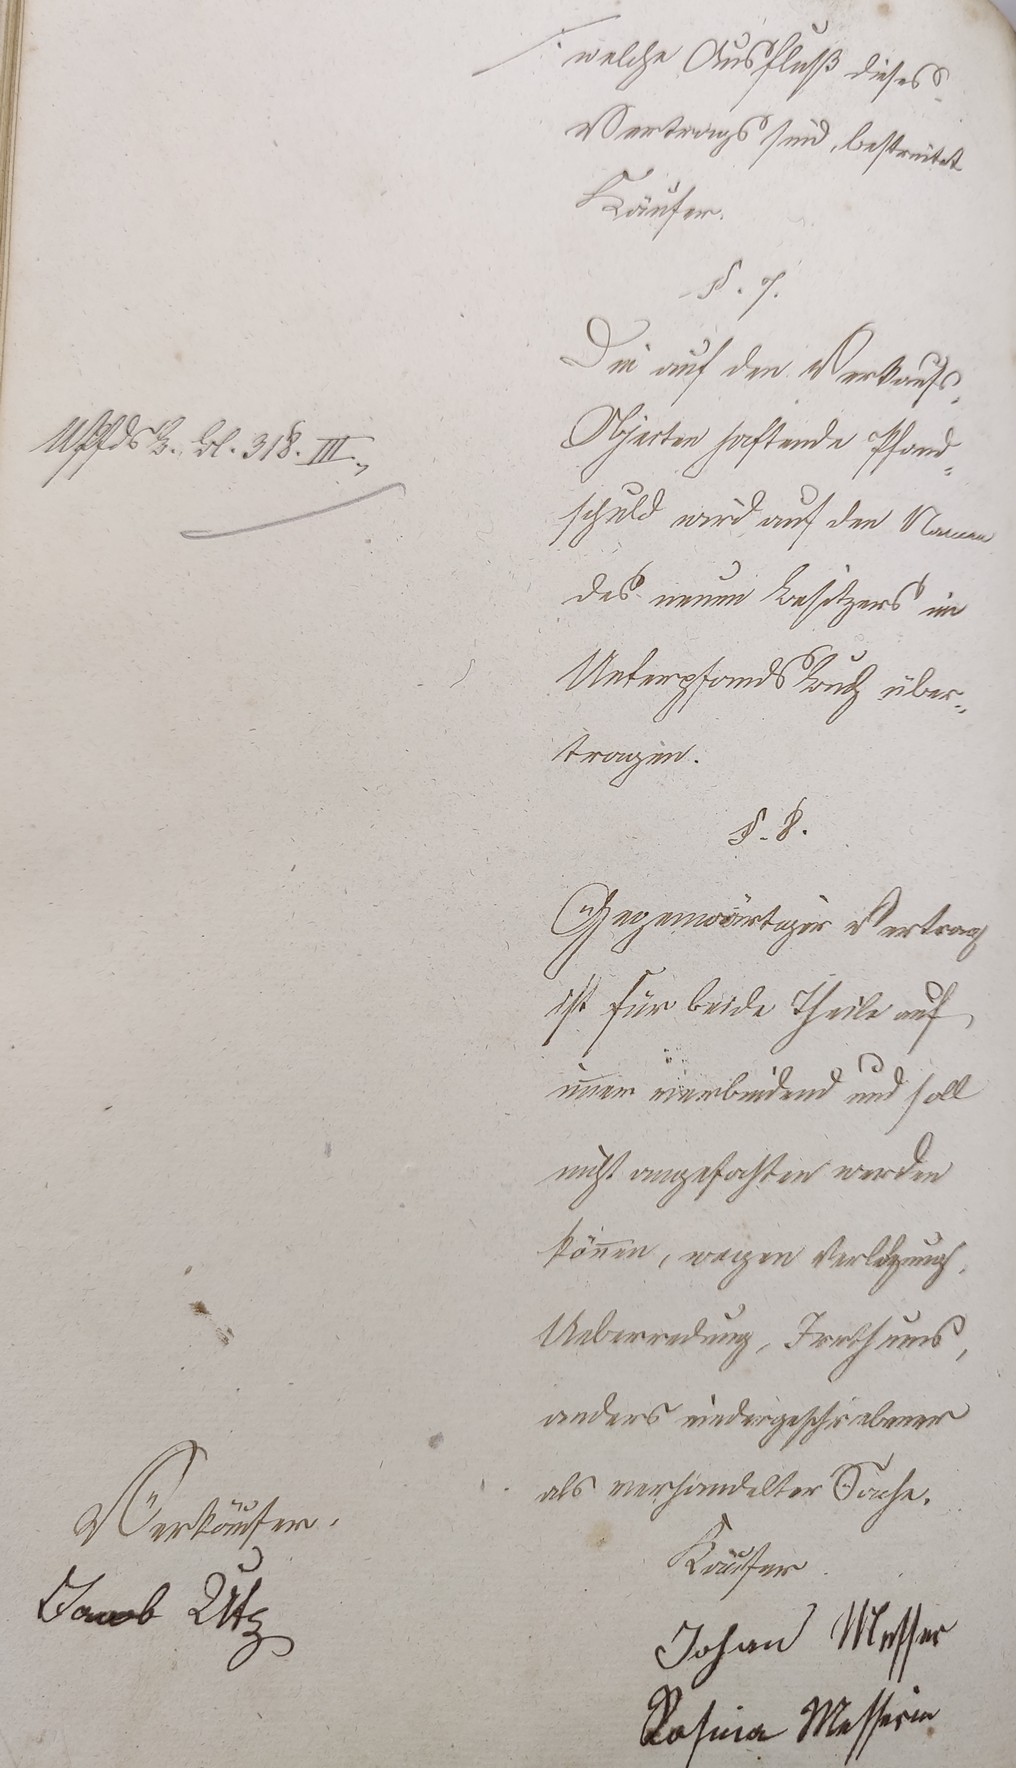 welche Ausfluß dieses
Vertrags sind, bestreitet
Käufer.
§. 7.
Die auf den Verkaufs-
Objecten haftende Pfand-
UPfdsB. Bl. 318. III.
schuld wird auf den Namen
des neuen Besitzers im
Unterpfandsbuch über-
tragen.
§. 8.
Gegenwärtiger Vertrag
ist für beide Theile auf
immer verbindend und soll
nicht angefochten werden
können, wegen Verletzung,
Ueberredung, Irrthums,
anders niedergeschriebener
als verhandelter Sache.
Verkäufer.
Jacob Utz
Käufer
Johan Messer
Rosina Messerin